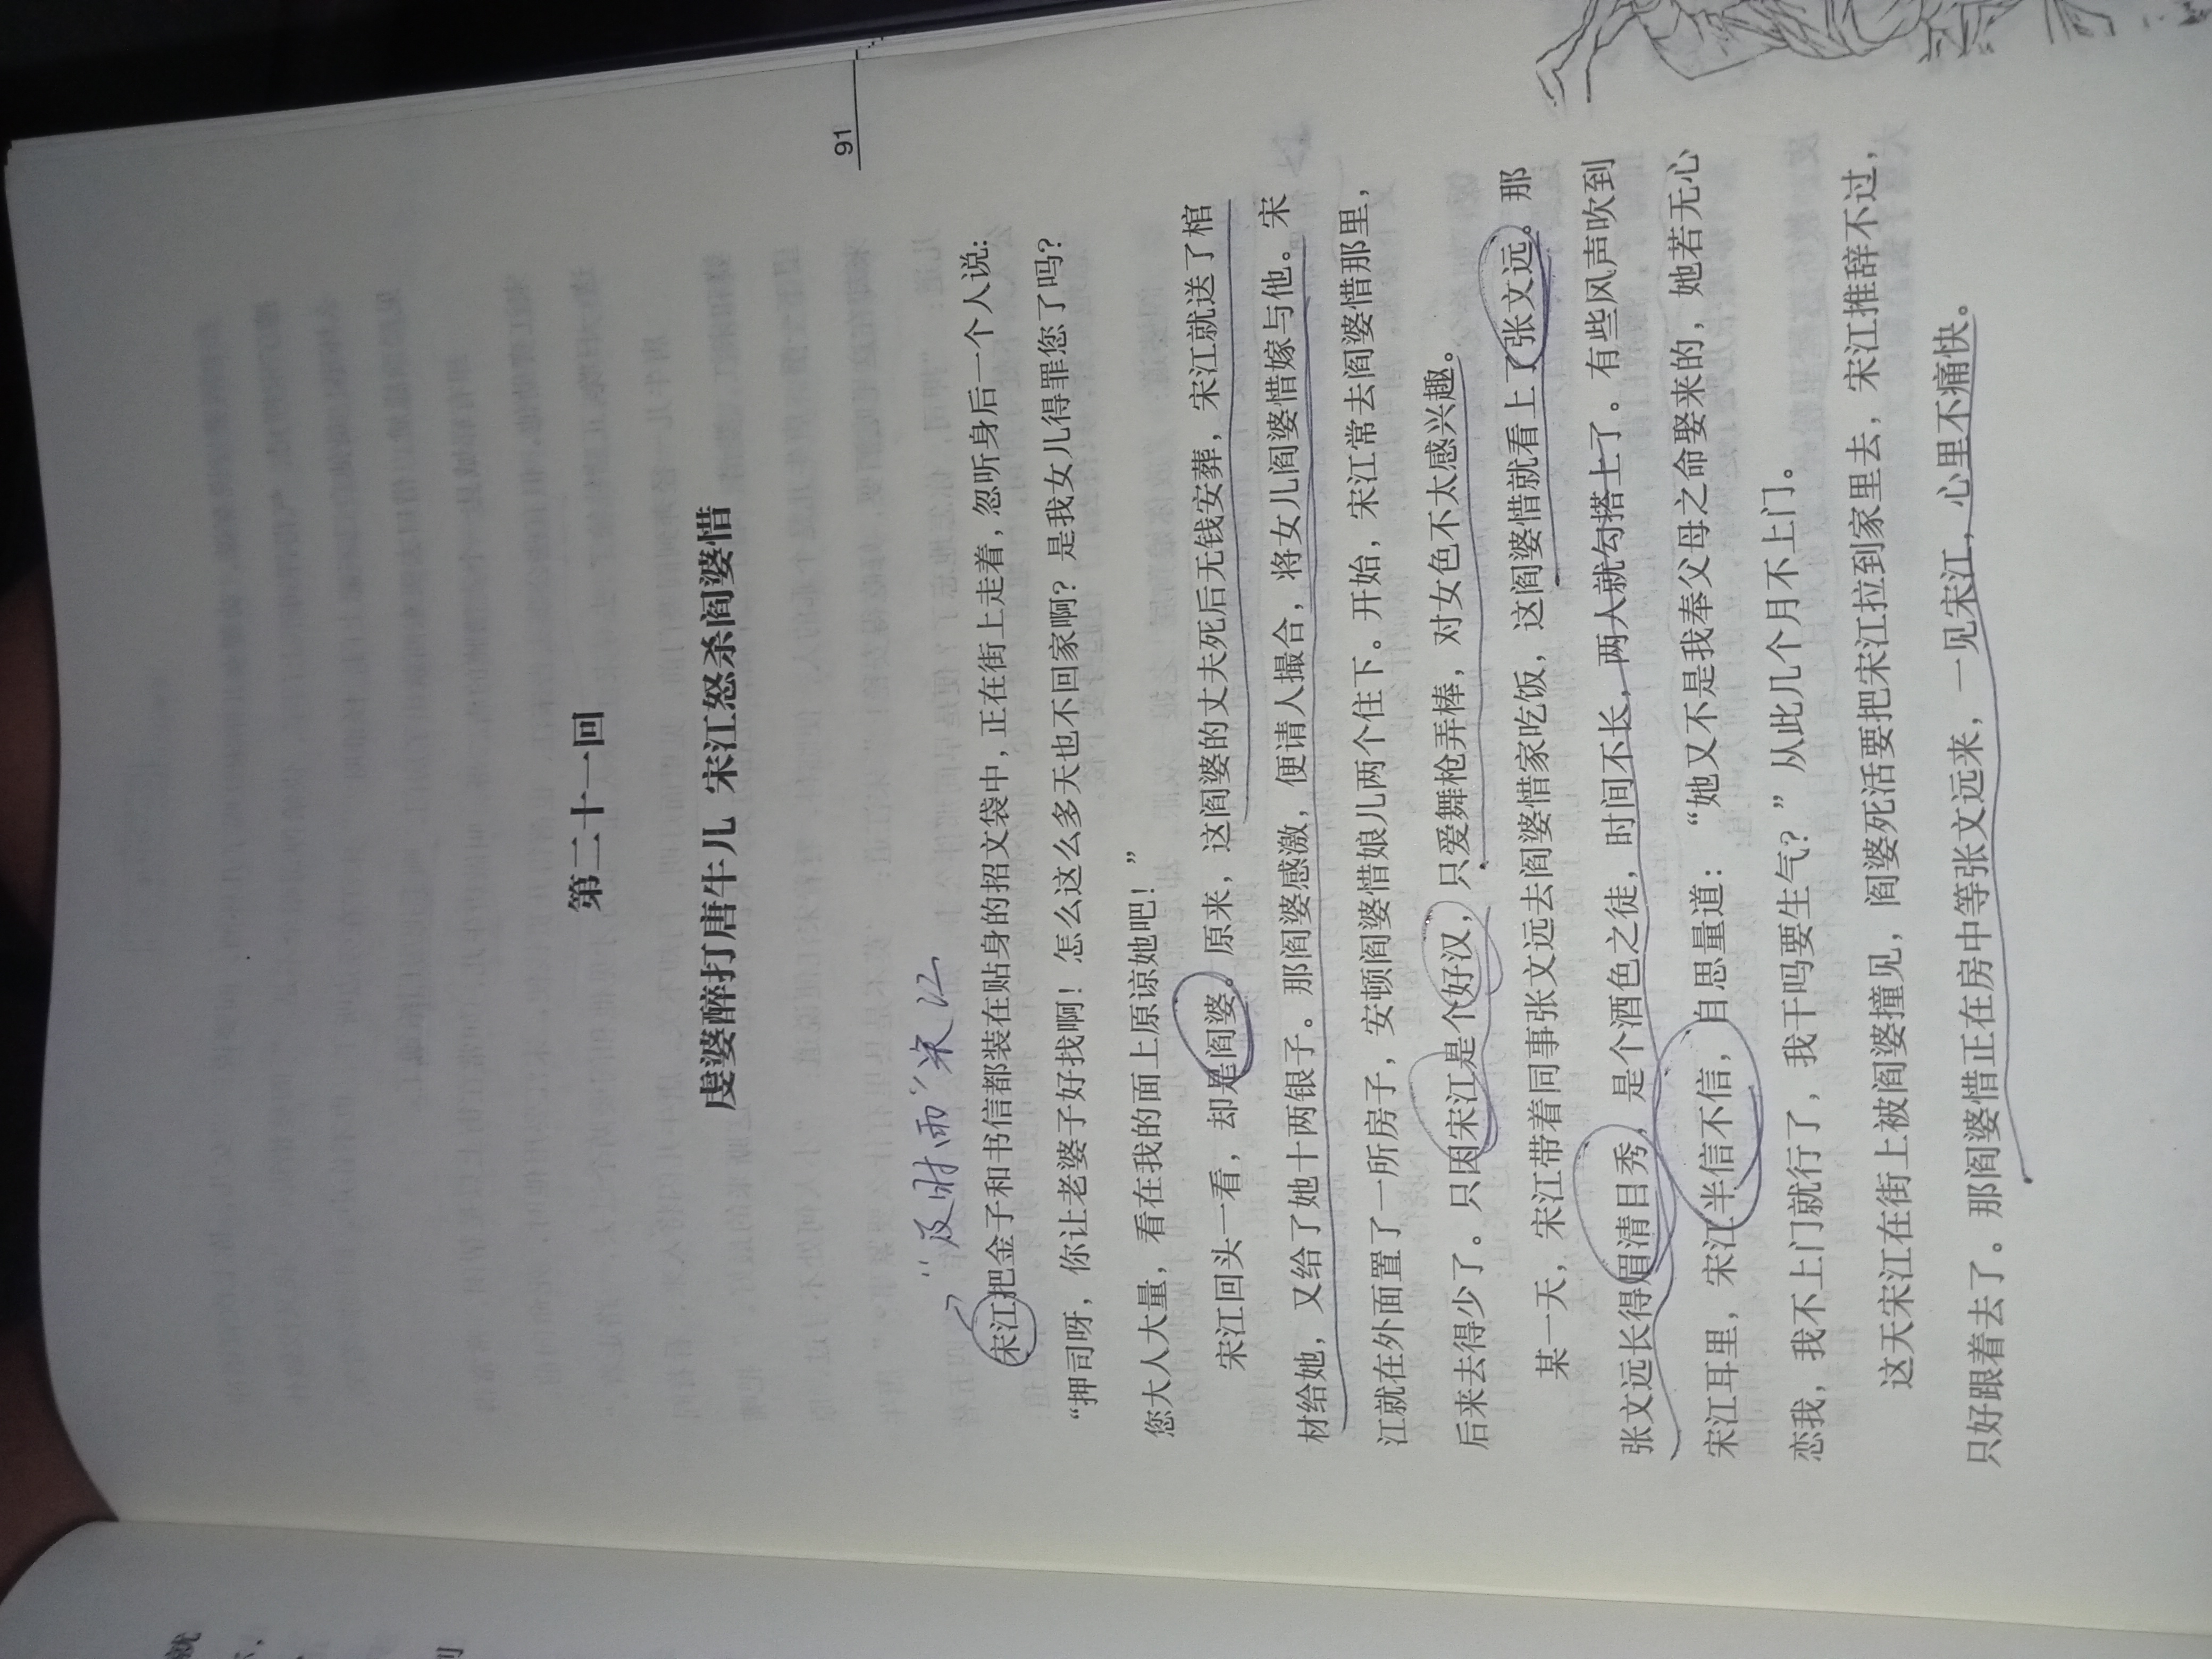 第二十一回
虔婆醉打唐牛儿 宋江怒杀阎婆惜
“及时雨”宋江
宋江把金子和书信都装在贴身的招文袋中，正在街上走着，忽听身后一个人说：
“押司呀，你让老婆子好找啊！怎么这么多天也不回家啊？是我女儿得罪您了吗？
您大人大量，看在我的面上原谅她吧！”
宋江回头一看，却是阎婆。原来，这阎婆的丈夫死后无钱安葬，宋江就送了棺
材给她，又给了她十两银子。那阎婆感激，便请人撮合，将女儿阎婆惜嫁与他。宋
江就在外面置了一所房子，安顿阎婆惜娘儿两个住下。开始，宋江常去阎婆惜那里，
后来去得少了。只因宋江是个好汉，只爱舞枪弄棒，对女色不太感兴趣。
某一天，宋江带着同事张文远去阎婆惜家吃饭，这阎婆惜就看上了张文远。那
张文远长得眉清目秀，是个酒色之徒，时间不长，两人就勾搭上了。有些风声吹到
宋江耳里，宋江半信不信，自思量道：“她又不是我奉父母之命娶来的，她若无心
恋我，我不上门就行了，我干吗要生气？”从此几个月不上门。
这天宋江在街上被阎婆撞见，阎婆死活要把宋江拉到家里去，宋江推辞不过，
只好跟着去了。那阎婆惜正在房中等张文远来，一见宋江，心里不痛快。
91